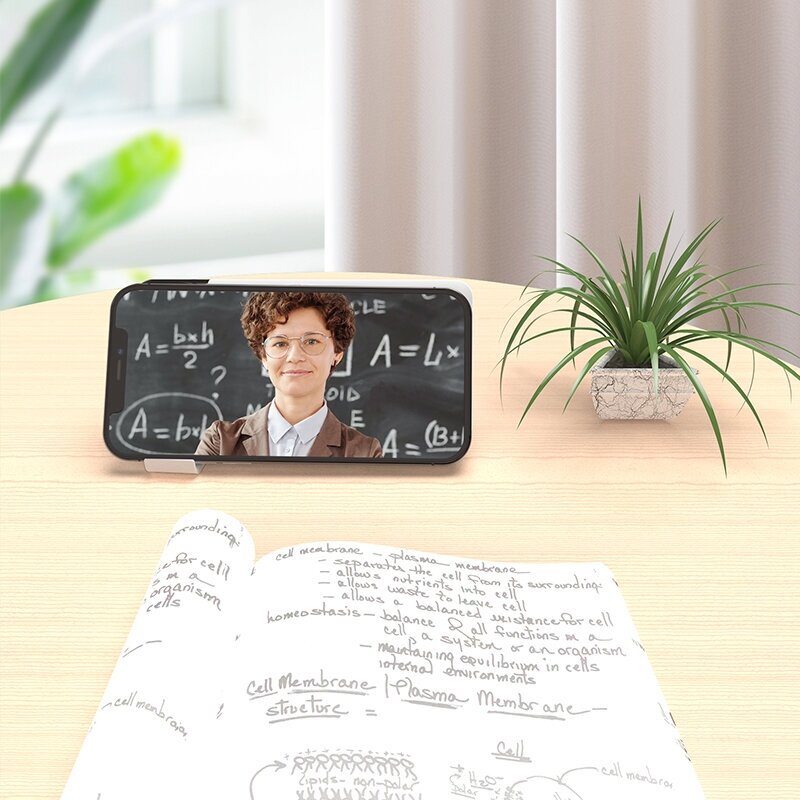 CLE
A = bxh/2
?
A = Lx
OID
A = bxh
E
A = (B+
surrounding:
for cell
in a
organism
cells
cell membrane
cell membrane - plasma membrane
- separates the cell from its surrounding:
- allows nutrients into cell
- allows waste to leave cell
- allows a balanced existance for cell
homeostasis - balance of all functions in a
cell, a system or an organism
- maintaining equilibrium in cells
internal environments
Cell Membrane / Plasma Membrane -
structure =
Cell
lipids - non-polar
Polar
H2O
cell membra